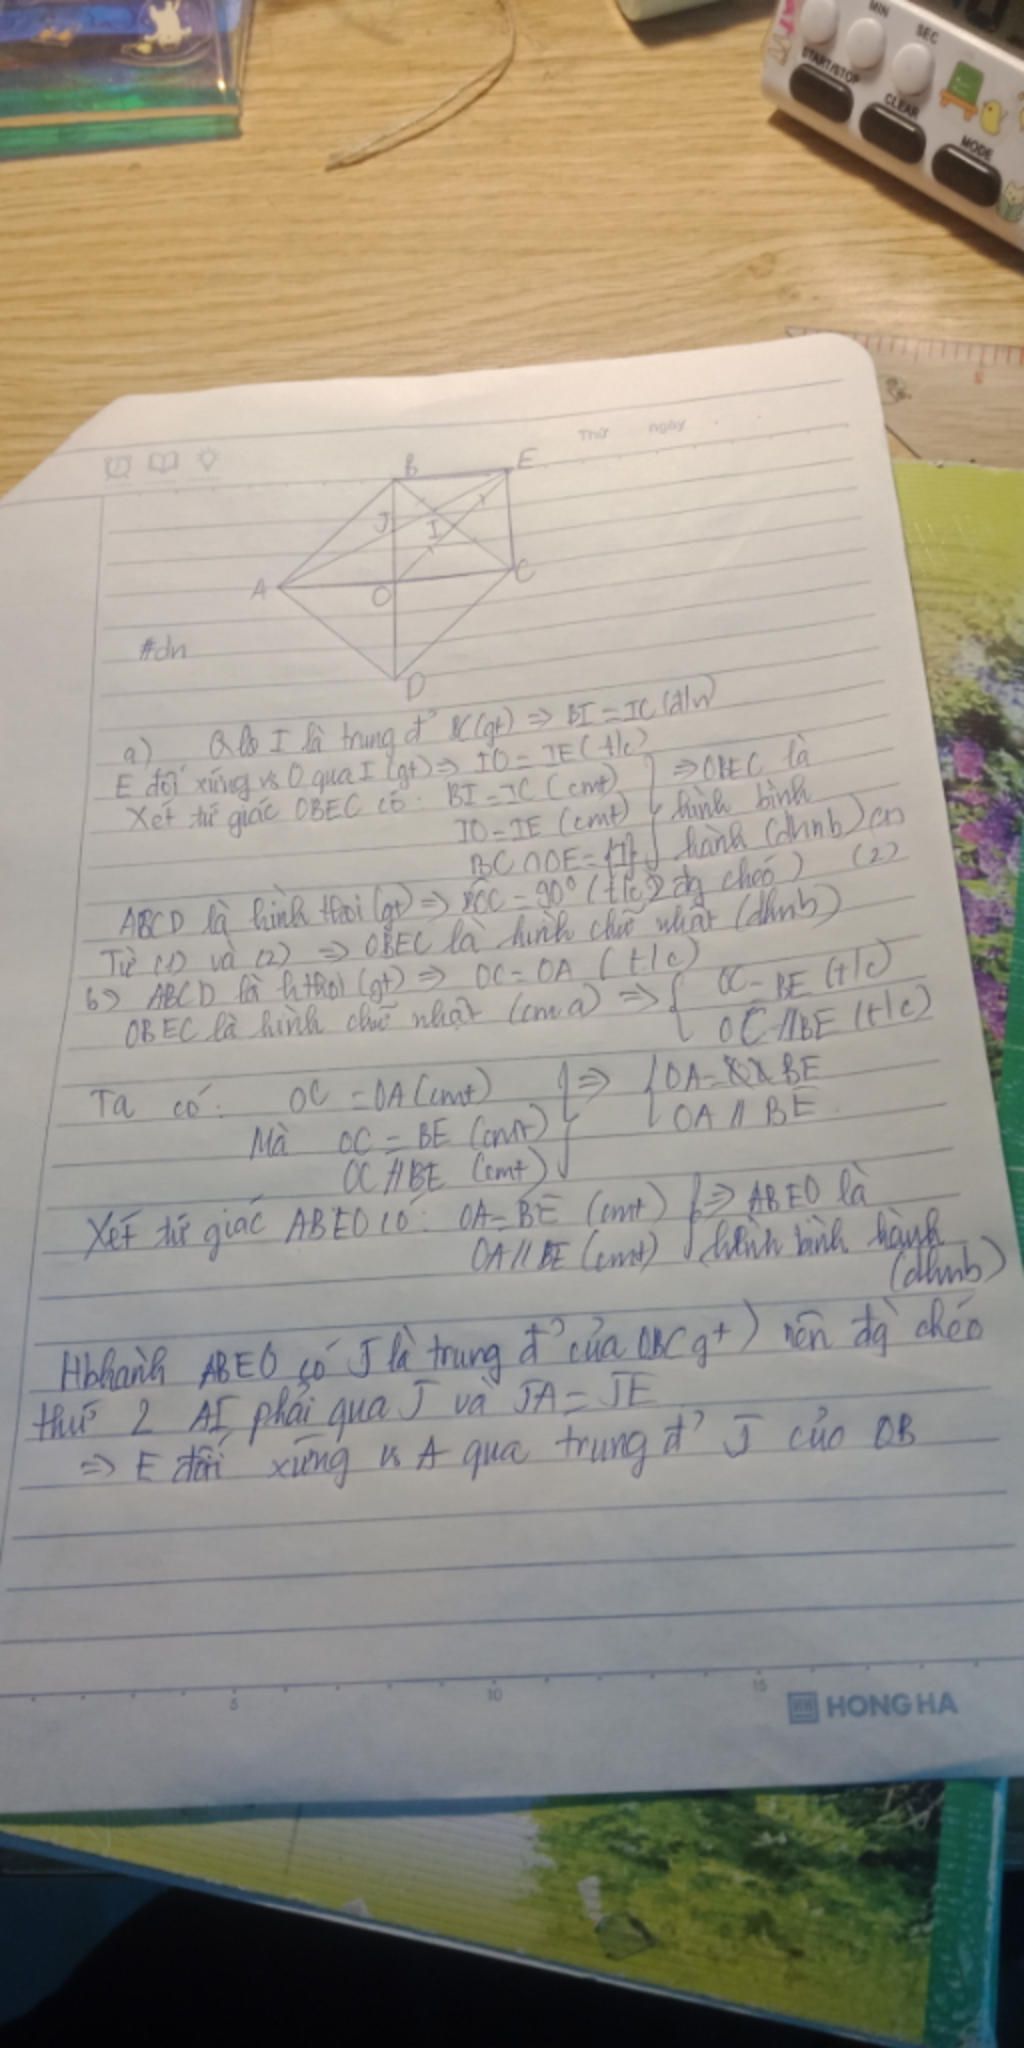 MIN
SEC
START/STOP
CLEAR
MODE
Thứ ngày
B
E
J
I
A
O
C
D
#dn
a) I là trung đ² BC (gt) => BI = IC (đ/n)
E đối xứng vs O qua I (gt) => IO = IE (t/c)
Xét tứ giác OBEC có: BI = IC (cmt) } => OBEC là
IO = IE (cmt) hình bình
BC ∩ OE = {I} hành (dhnb) (1)
ABCD là hình thoi (gt) => BOC = 90° (t/c 2 đg chéo) (2)
Từ (1) và (2) => OBEC là hình chữ nhật (dhnb)
b) ABCD là h thoi (gt) => OC = OA (t/c)
OBEC là hình chữ nhật (cm a) => { OC = BE (t/c)
OC // BE (t/c)
Ta có: OC = OA (cmt) } => { OA = BE
Mà OC = BE (cmt) OA // BE
OC // BE (cmt)
Xét tứ giác ABEO có: OA = BE (cmt) } => ABEO là
OA // BE (cmt) hình bình hành
(dhnb)
Hbhành ABEO có J là trung đ² của OB (gt) nên đg chéo
thứ 2 AI phải qua J và JA = JE
=> E đối xứng vs A qua trung đ² J của OB
5 10 15
HONG HA